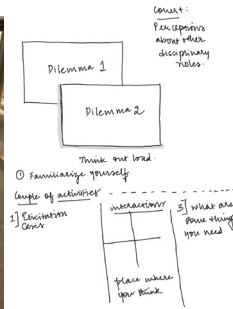 Covert:
Perceptions
about other
disciplinary
roles.
Dilemma 1
Dilemma 2
Think out loud.
① Familiarize yourself
Couple of activities
1] Elicitation
Cases
interactions
place where
you think
3] What are
some thing
you need